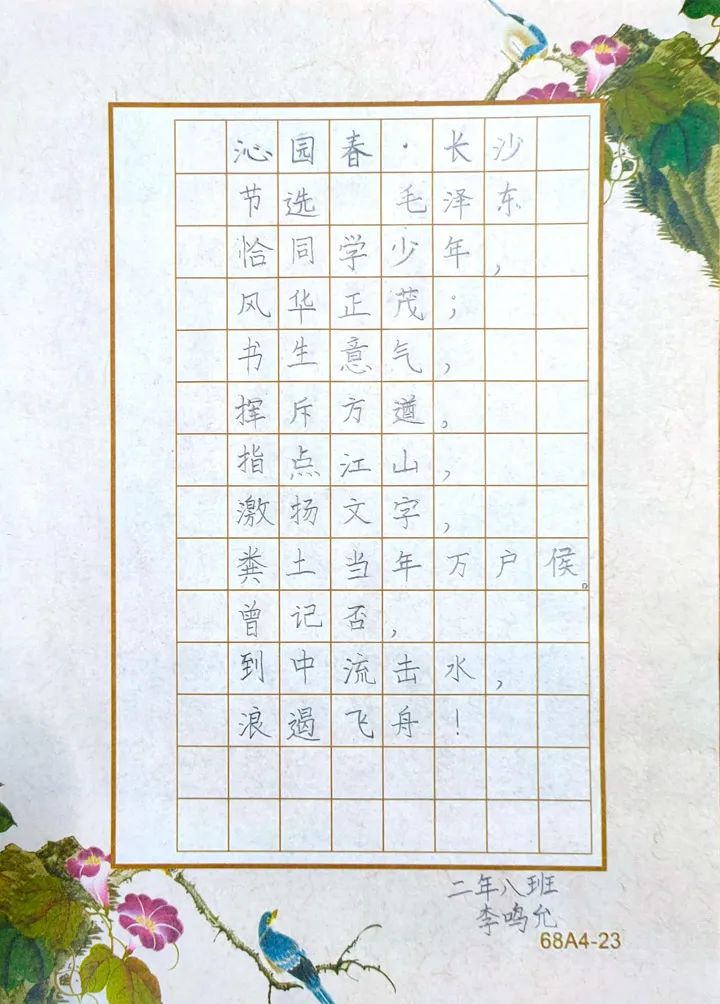 沁园春·长沙
节选 毛泽东
恰同学少年，
风华正茂；
书生意气，
挥斥方遒。
指点江山，
激扬文字，
粪土当年万户侯。
曾记否，
到中流击水，
浪遏飞舟！
二年八班
李鸣允
68A4-23